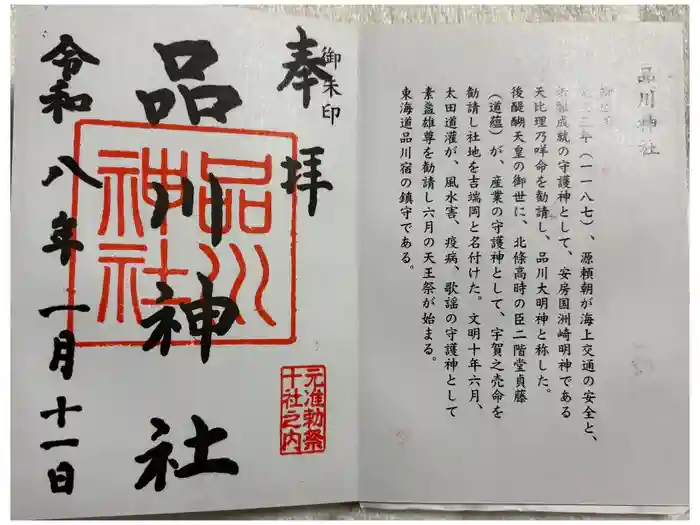 品川神社
文治三年（一一八七）、源頼朝が海上交通の安全と、
祈願成就の守護神として、安房国洲崎明神である
天比理乃咩命を勧請し、品川大明神と称した。
後醍醐天皇の御世に、北條高時の臣二階堂貞藤
（道蘊）が、産業の守護神として、宇賀之売命を
勧請し社地を吉端岡と名付けた。文明十年六月、
太田道灌が、風水害、疫病、歌謡の守護神として
素盞雄尊を勧請し六月の天王祭が始まる。
東海道品川宿の鎮守である。
御朱印
奉拝
品川神社
令和八年一月十一日
品川
神社
元准勅祭
十社之内